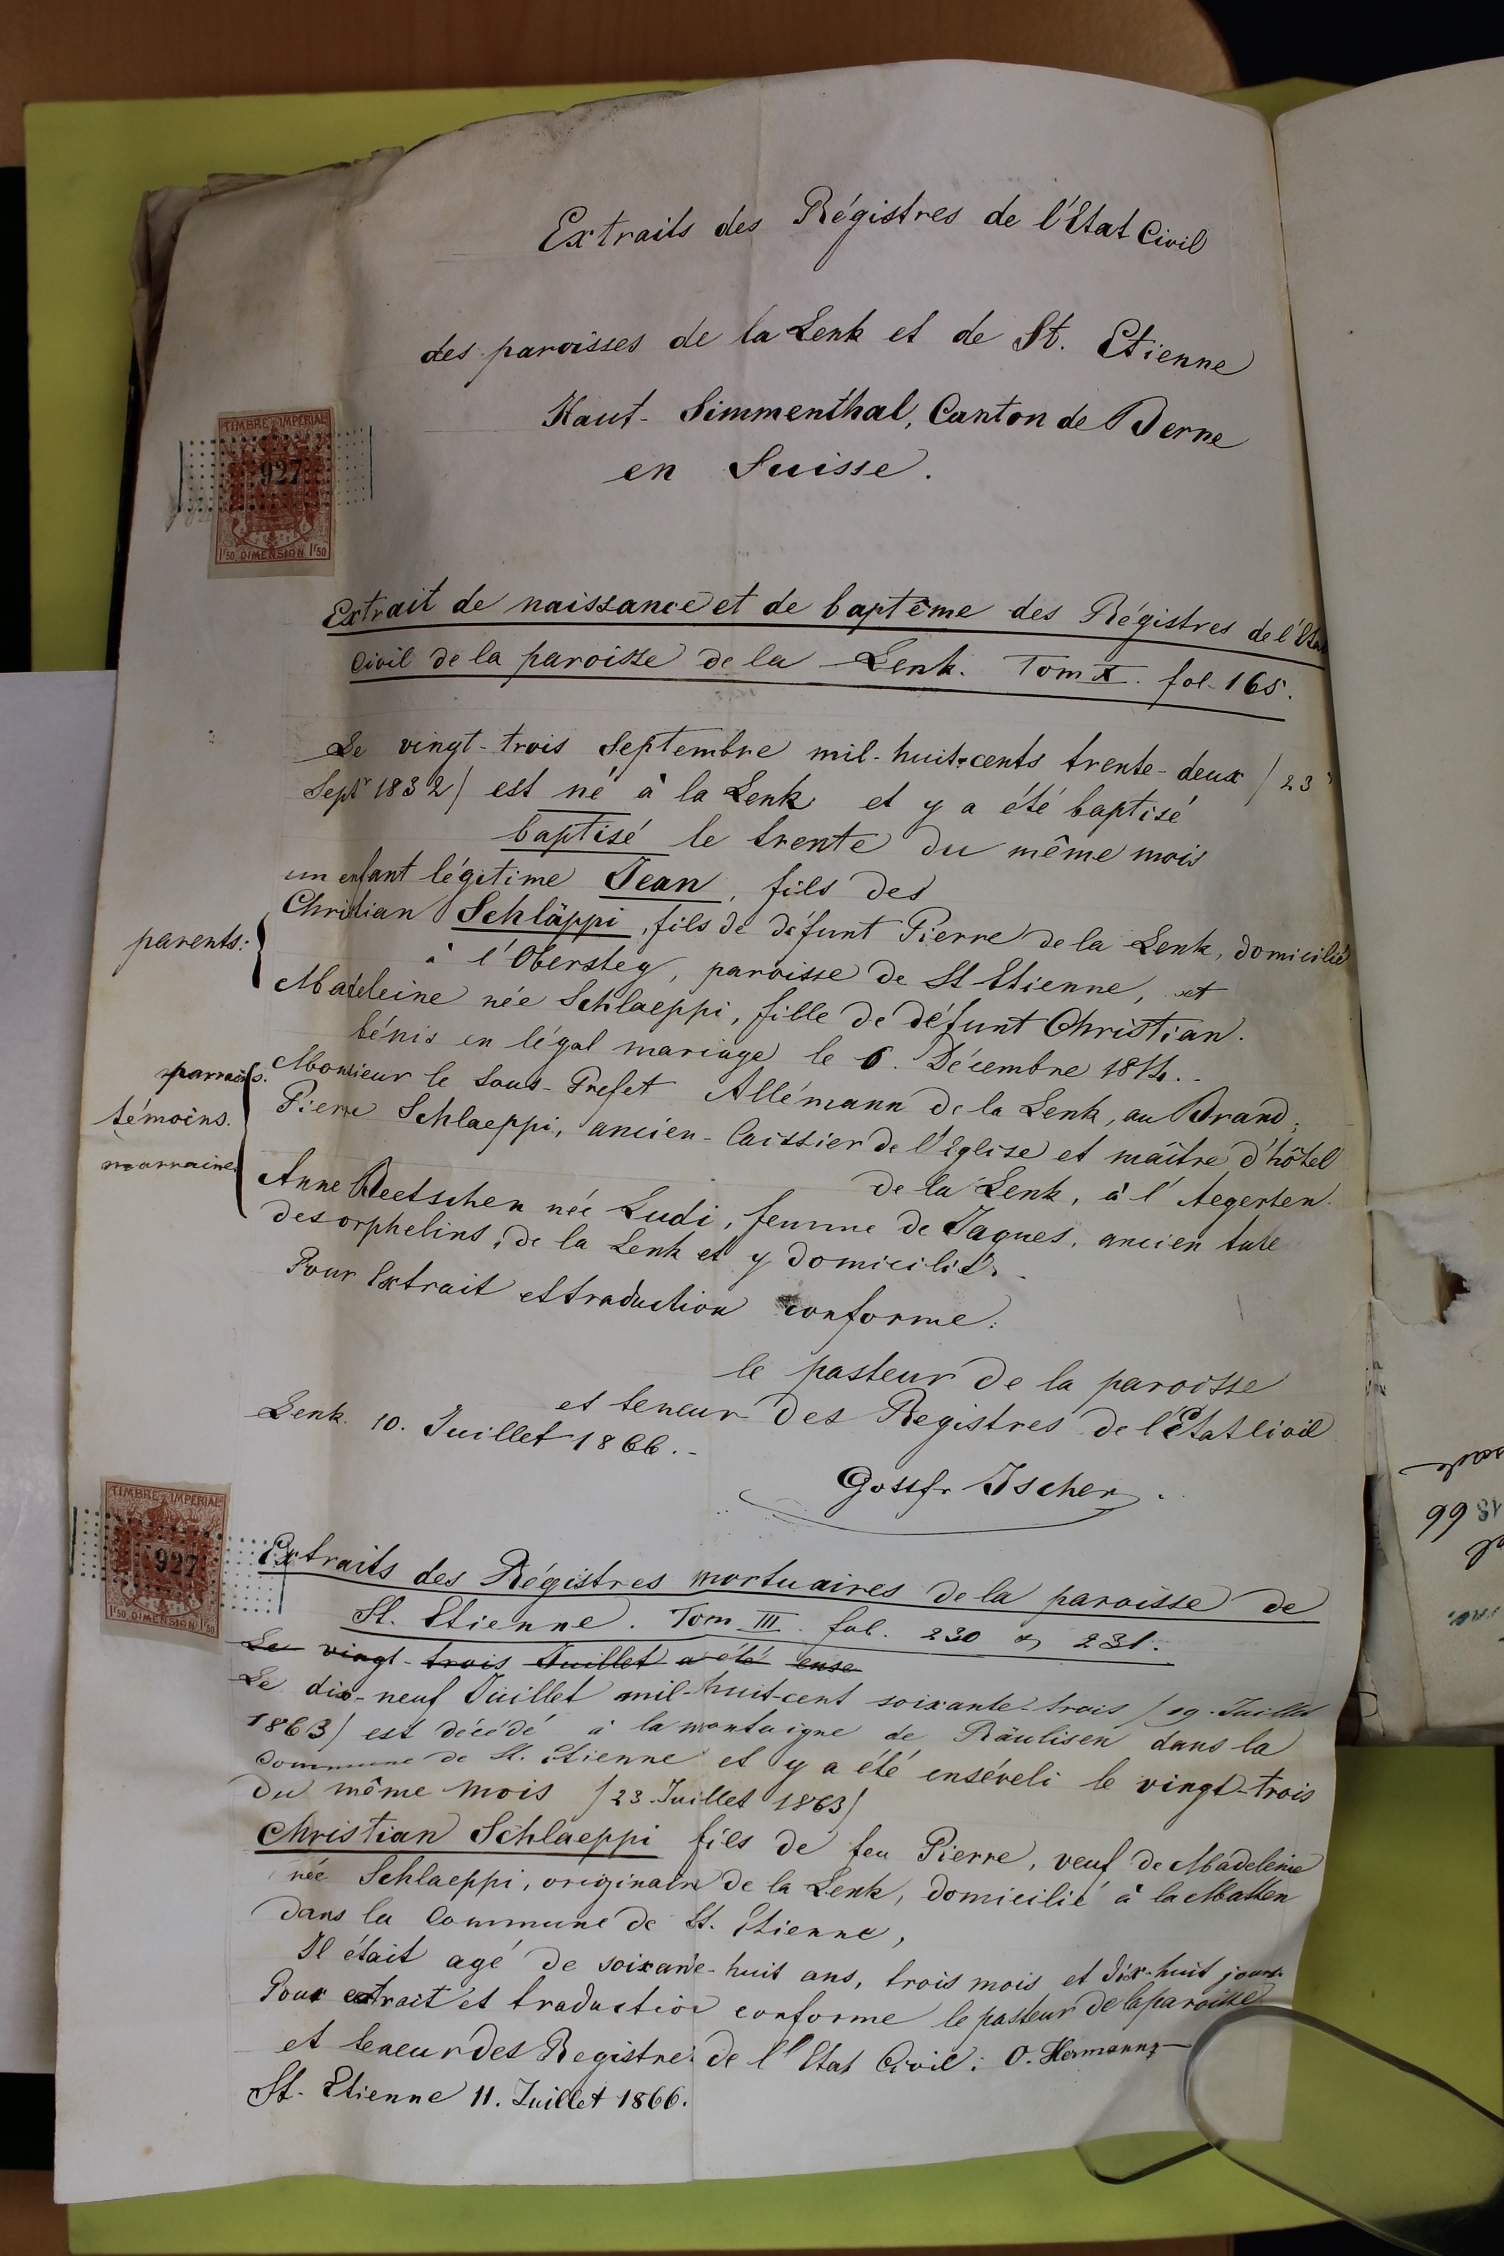 Extraits des Régistres de l'Etat Civil
des paroisses de la Lenk et de St. Etienne
Haut-Simmenthal, Canton de Berne
en Suisse.
TIMBRE IMPERIAL
927
1f50 DIMENSION 1f50
Extrait de naissance et de baptême des Régistres de l'Etat
Civil de la paroisse de la Lenk. Tom X. fol. 165.
Le vingt-trois Septembre mil-huit-cents trente-deux / 23
Septr 1832 / est né à la Lenk et y a été baptisé
baptisé le trente du même mois
un enfant légitime Jean, fils des
parents: Christian Schläppi, fils de défunt Pierre de la Lenk, domicilié
à l'Obersteg, paroisse de St Etienne, et
Madeleine née Schlaeppi, fille de défunt Christian.
bénis en légal mariage le 6. Décembre 1814.-
parrains. Monsieur le Sous-Prefet Allémann de la Lenk, au Brand;
témoins. Pierre Schlaeppi, ancien-Caissier de l'Eglise et maître d'hôtel
de la Lenk, à l'Aegerten.
marraine Anne Beetschen née Ludi, femme de Jaques, ancien
des orphelins, de la Lenk et y domicilié.
Pour Extrait et traduction conforme:
le pasteur de la paroisse
et teneur des Registres de l'Etat Civil
Lenk. 10. Juillet 1866.-
Gottfr Ischer.
TIMBRE IMPERIAL
927
1f50 DIMENSION 1f50
Extraits des Régistres mortuaires de la paroisse de
St. Etienne. Tom III. fol. 230 & 231.
Le vingt-trois Juillet a été ense
Le dix-neuf Juillet mil-huit-cent soixante-trois / 19. Juillet
1863 / est décédé à la montaigne de Räulisen dans la
Commune de St. Etienne et y a été enséveli le vingt-trois
du même mois / 23. Juillet 1863 /
Christian Schlaeppi fils de feu Pierre, veuf de Madeleine
née Schlaeppi, originaire de la Lenk, domicilié à la Matten
dans la Commune de St. Etienne,
Il était agé de soixante-huit ans, trois mois et dix-huit jours.
Pour extrait et traduction conforme le pasteur de la paroisse
et teneur des Registres de l'Etat Civil: O. Hermann
St. Etienne 11. Juillet 1866.
1866